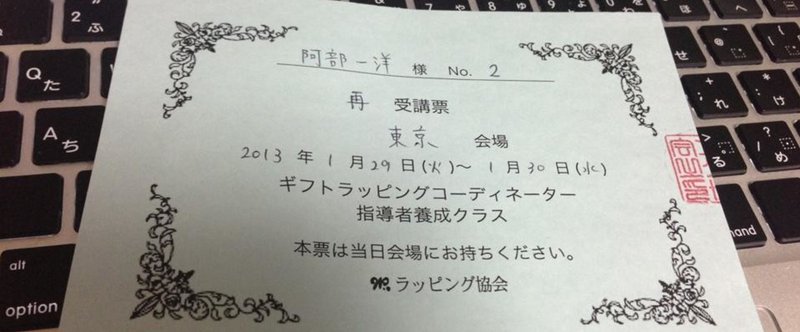 阿部一洋 様 No. 2
再 受講票
東京 会場
2013 年 1 月 29 日(火)~ 1 月 30 日(水)
ギフトラッピングコーディネーター
指導者養成クラス
本票は当日会場にお持ちください。
ラッピング協会
Q た
A ち
alt
option